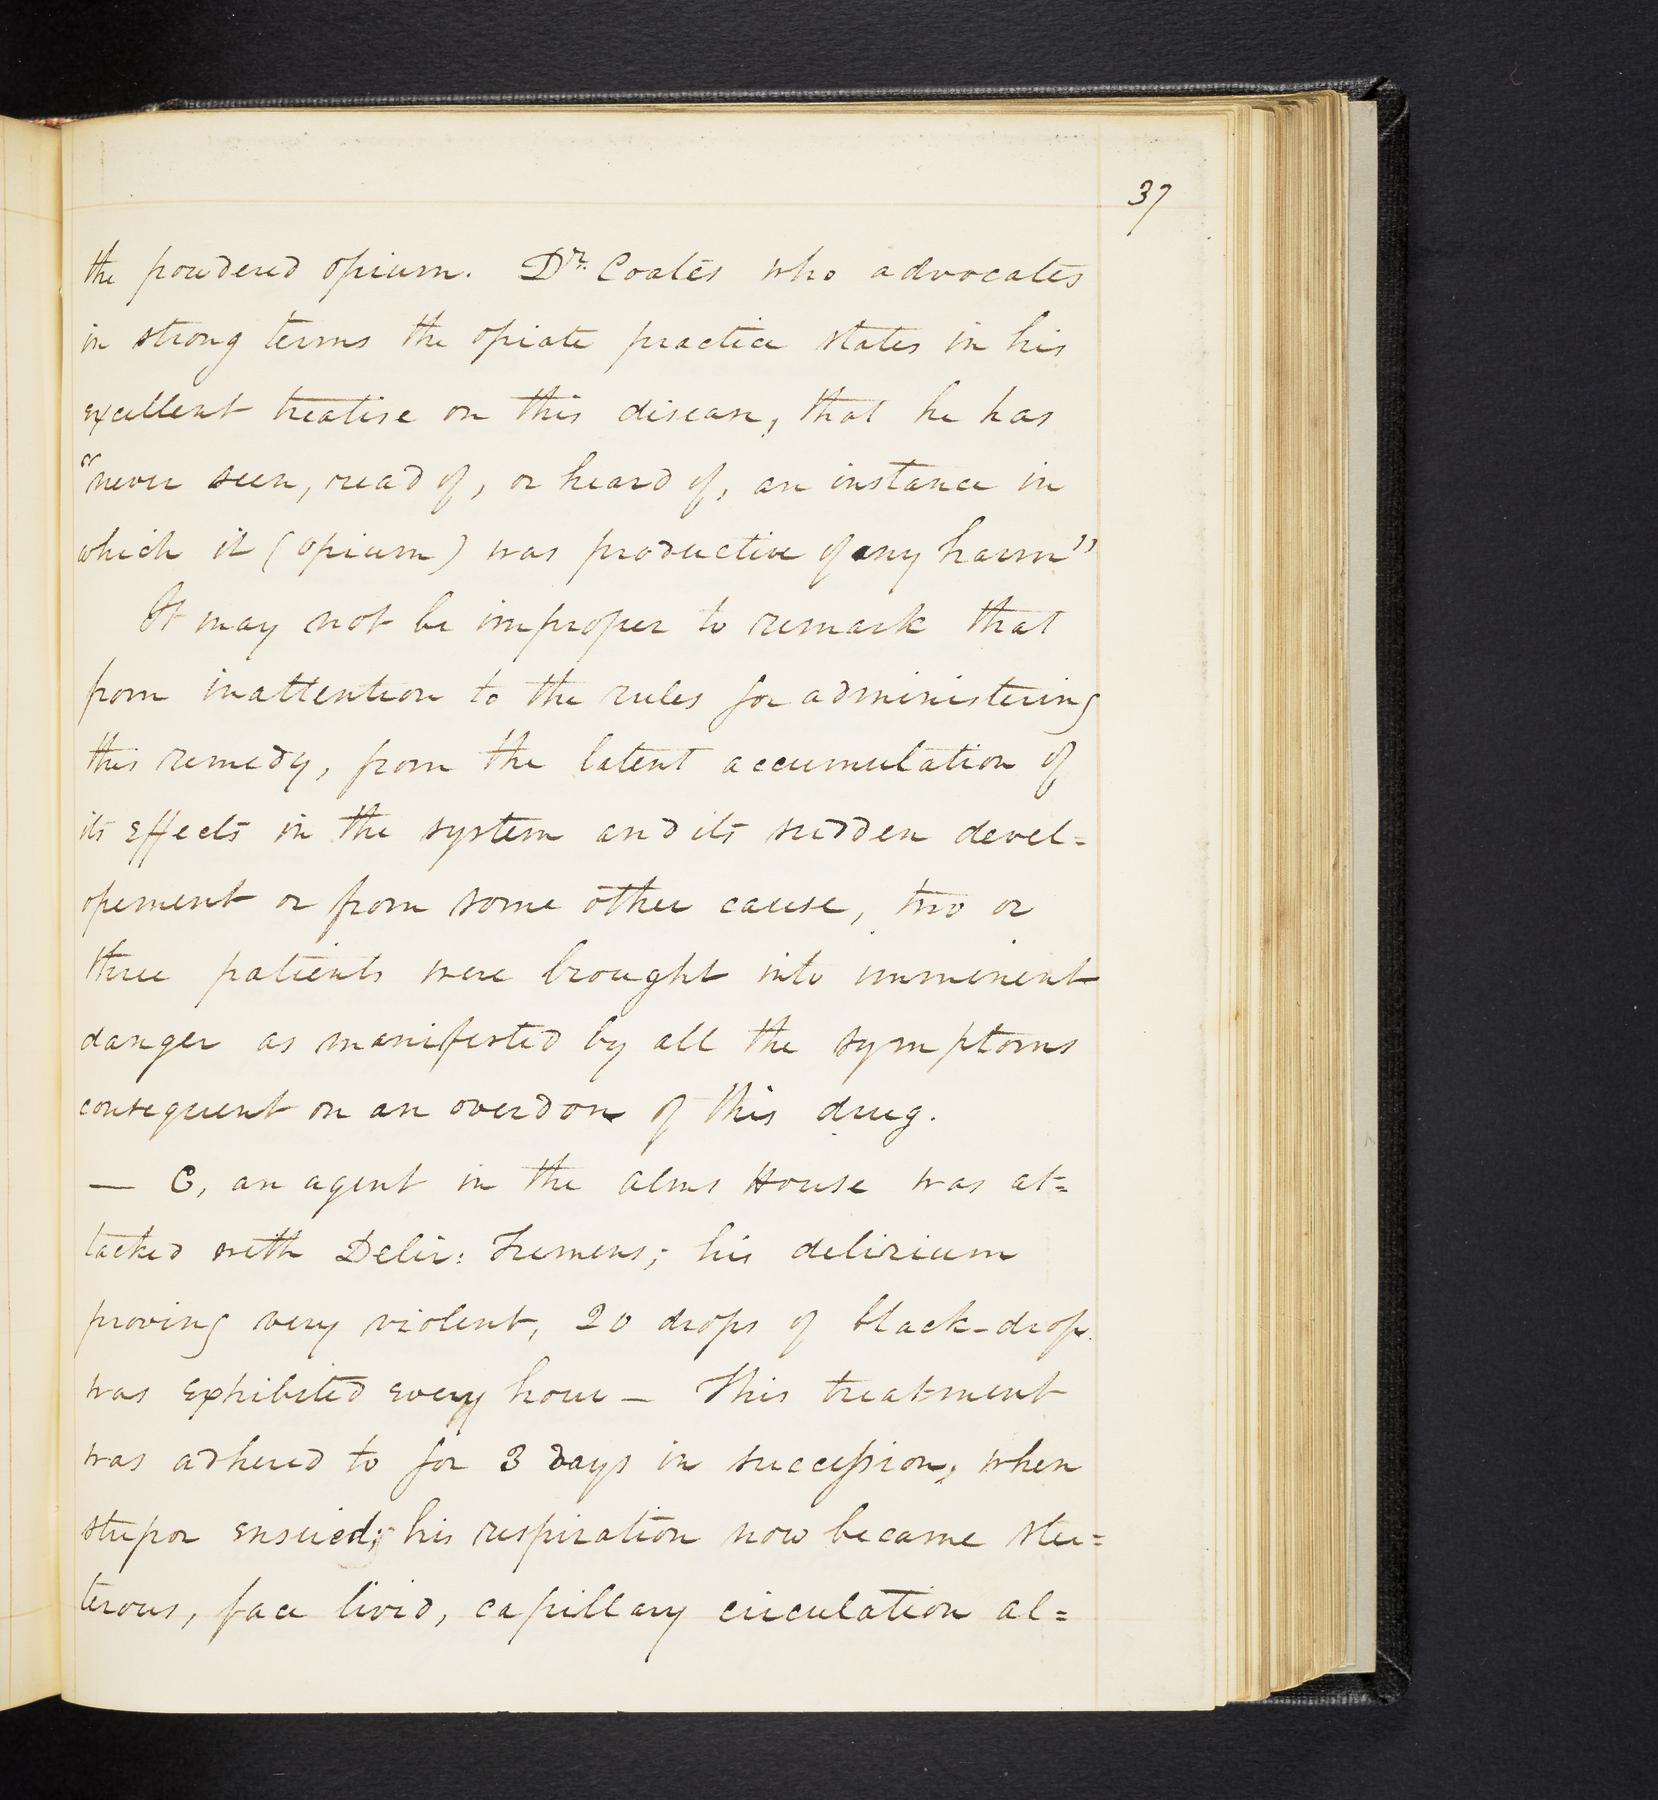 37
the powdered opium. Dr. Coates who advocates
in strong terms the opiate practice states in his
excellent treatise on this disease, that he has
"never seen, read of, or heard of, an instance in
which it (opium) was productive of any harm"
It may not be improper to remark that
from inattention to the rules for administering
this remedy, from the latent accumulation of
its effects in the system and its sudden devel=
opement or from some other cause, two or
three patients were brought into imminent
danger as manifested by all the symptoms
consequent on an overdose of this drug.
— C, an agent in the Alms House was at=
tacked with Delir: Tremens; his delirium
proving very violent, 20 drops of black-drop
was exhibited every hour — This treatment
was adhered to for 3 days in succession, when
stupor ensued; his respiration now became ster=
terous, face livid, capillary circulation al=